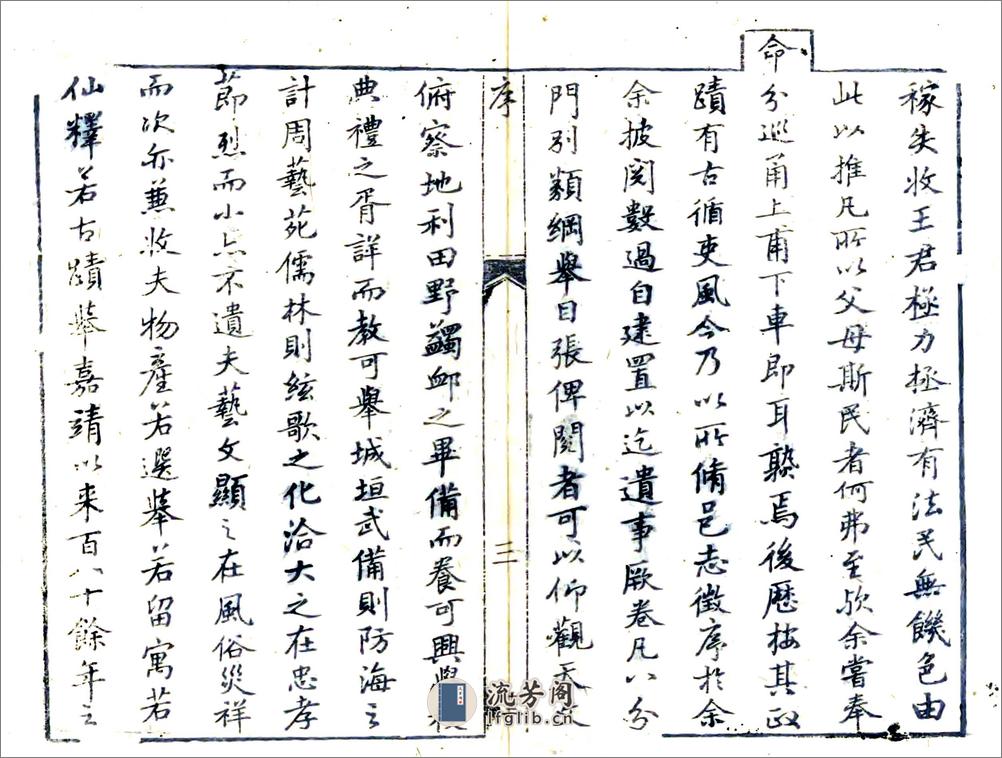 稼失收王君極力拯濟有法民無饑色由
此以推凡所以父母斯民者何弗至欤余嘗奉
命
分巡甬上甫下車即耳熟焉後歷按其政
蹟有古循吏風今乃以所脩邑志徵序於余
余披閱數過自建置以迄遺事厥卷凡八分
門別類綱舉目張俾閱者可以仰觀天
序
三
俯察地利田野蠲卹之畢備而養可興學
典禮之胥詳而教可舉城垣武備則防海之
計周藝苑儒林則絃歌之化洽大之在忠孝
節烈而小亦不遺夫藝文顯之在風俗災祥
而次亦兼收夫物產若選舉若留寓若
仙釋若古蹟華嘉靖以来百八十餘年之
流芳阁
lfglib.cn